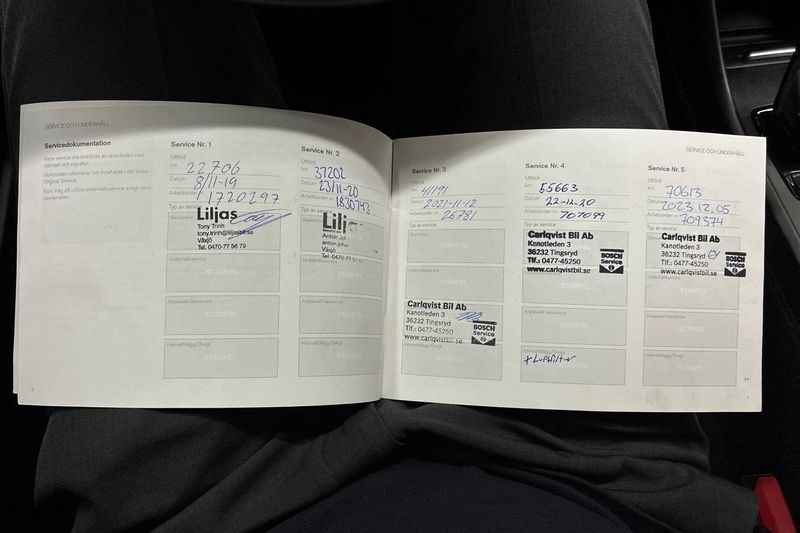 SERVICE OCH UNDERHÅLL
Servicedokumentation
Varje service ska bokföras av verkstaden med
stämpel och signatur.
Verkstaden informerar om innehållet i din Volvo
Original Service.
Kom ihåg att utföra underhållsservice enligt
Service Nr. 1
Utförd
km 22,706
Datum 8/11-19
Arbetsorder nr. 1720297
Typ av service
Basservice
Liljas
Tony Trinh
tony.trinh@liljasbil.se
Växjö
Tel. 0470-77 56 79
Underhållsservice
STÄMPEL
Anpassad basservice
STÄMPEL
Intervalltillägg/Övrigt
STÄMPEL
Service Nr. 2
Utförd
km 37202
Datum 23/11-20
Arbetsorder nr. 1830743
Typ av service
Lilj
Anton Jo
anton.joha
Växjö
Tel: 0470-77
STÄMPEL
Anpassad basservice
STÄMPEL
Intervalltillägg/Övrigt
STÄMPEL
SERVICE OCH UNDERHÅLL
Service Nr. 3
Utförd
km 41191
Datum 2021-11-12
Arbetsorder nr. 26781
Typ av service
Basservice
Underhållsservice
Carlqvist Bil Ab
Kanotleden 3
36232 Tingsryd
Tlf.: 0477-45250
www.carlqvistbil.se
BOSCH
Service
Intervalltillägg/Övrigt
STÄMPEL
Service Nr. 4
Utförd
km 55663
Datum 22-12-20
Arbetsorder nr. 707099
Typ av service
Carlqvist Bil Ab
Kanotleden 3
36232 Tingsryd
Tlf.: 0477-45250
www.carlqvistbil.se
BOSCH
Service
Anpassad basservice
STÄMPEL
Intervalltillägg/Övrigt
STÄMPEL
+Luftfilter
Service Nr. 5
Utförd
km 70613
Datum 2023.12.05
Arbetsorder nr. 709374
Typ av service
Carlqvist Bil Ab
Kanotleden 3
36232 Tingsryd
Tlf.: 0477-45250
www.carlqvistbil.se
BOSCH
Service
Underhållsservice
STÄMPEL
Anpassad basservice
STÄMPEL
Intervalltillägg/Övrigt
STÄMPEL